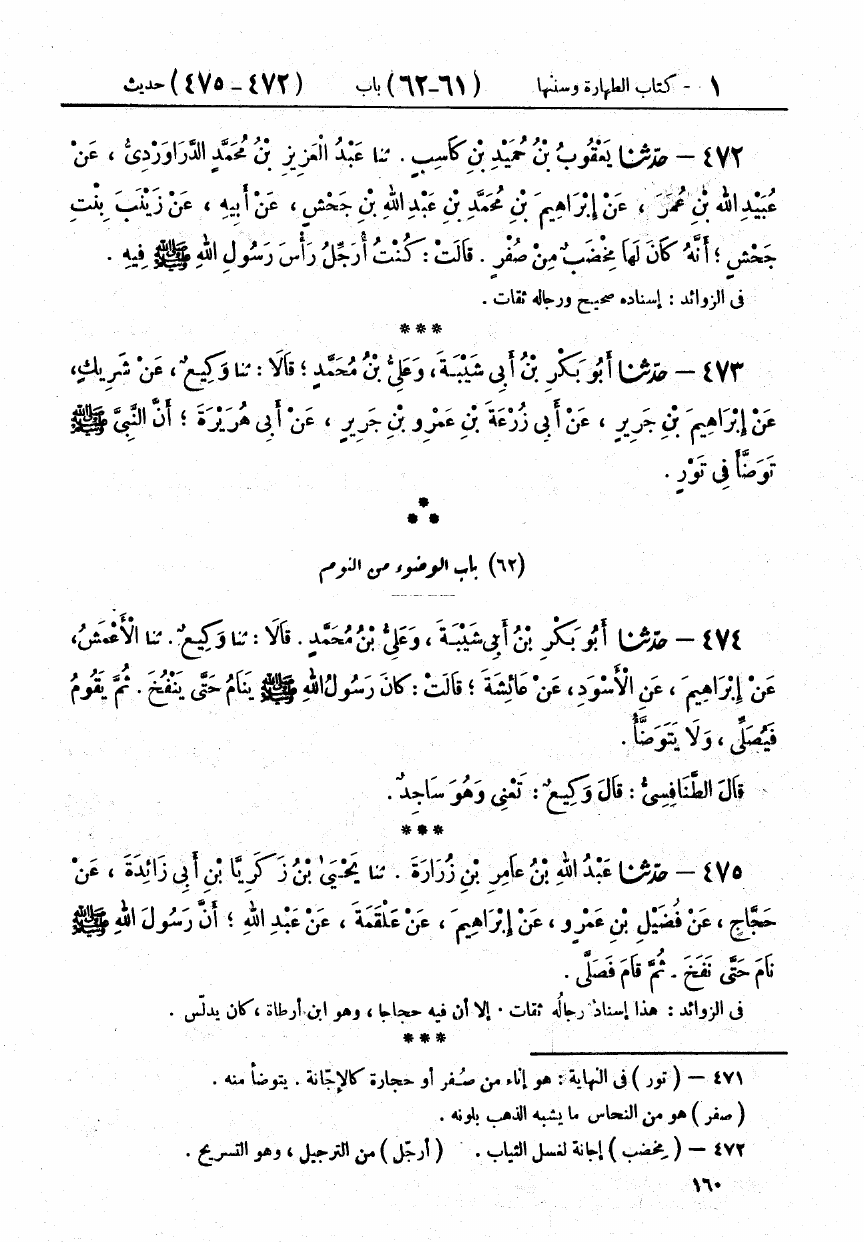 ١ - كتاب الطهارة وسننها (٦١-٦٢) باب (٤٧٢-٤٧٥) حديث
٤٧٢ — حَدَّثَنَا يَعْقُوبُ بْنُ حُمَيْدِ بْنِ كَاسِبٍ . ثنا عَبْدُ الْعَزِيزِ بْنُ مُحَمَّدٍ الدَّرَاوَرْدِيُّ ، عَنْ
عُبَيْدِ اللهِ بْنِ عُمَرَ ، عَنْ إِبْرَاهِيمَ بْنِ مُحَمَّدِ بْنِ عَبْدِ اللهِ بْنِ جَحْشٍ ، عَنْ أَبِيهِ ، عَنْ زَيْنَبَ بِنْتِ
جَحْشٍ ؛ أَنَّهُ كَانَ لَهَا مِخْضَبٌ مِنْ صُفْرٍ . قَالَتْ : كُنْتُ أُرَجِّلُ رَأْسَ رَسُولِ اللهِ ﷺ فِيهِ .
فى الزوائد : إسناده صحيح ورجاله ثقات .
***
٤٧٣ — حَدَّثَنَا أَبُو بَكْرِ بْنُ أَبِي شَيْبَةَ ، وَعَلِيُّ بْنُ مُحَمَّدٍ ؛ قَالَا : ثنا وَكِيعٌ ، عَنْ شَرِيكٍ ،
عَنْ إِبْرَاهِيمَ بْنِ جَرِيرٍ ، عَنْ أَبِي زُرْعَةَ بْنِ عَمْرِو بْنِ جَرِيرٍ ، عَنْ أَبِي هُرَيْرَةَ ؛ أَنَّ النَّبِيَّ ﷺ
تَوَضَّأَ فِي تَوْرٍ .
*
* *
(٦٢) باب الوضوء من النوم
٤٧٤ — حَدَّثَنَا أَبُو بَكْرِ بْنُ أَبِي شَيْبَةَ ، وَعَلِيُّ بْنُ مُحَمَّدٍ . قَالَا : ثنا وَكِيعٌ . ثنا الْأَعْمَشُ ،
عَنْ إِبْرَاهِيمَ ، عَنِ الْأَسْوَدِ ، عَنْ عَائِشَةَ ؛ قَالَتْ : كَانَ رَسُولُ اللهِ ﷺ يَنَامُ حَتَّى يَنْفُخَ . ثُمَّ يَقُومُ
فَيُصَلِّي ، وَلَا يَتَوَضَّأُ .
قَالَ الطَّنَافِسِيُّ : قَالَ وَكِيعٌ : تَعْنِي وَهُوَ سَاجِدٌ .
***
٤٧٥ — حَدَّثَنَا عَبْدُ اللهِ بْنُ عَامِرِ بْنِ زُرَارَةَ . ثنا يَحْيَىٰ بْنُ زَكَرِيَّا بْنِ أَبِي زَائِدَةَ ، عَنْ
حَجَّاجٍ ، عَنْ فُضَيْلِ بْنِ عَمْرٍو ، عَنْ إِبْرَاهِيمَ ، عَنْ عَلْقَمَةَ ، عَنْ عَبْدِ اللهِ ؛ أَنَّ رَسُولَ اللهِ ﷺ
نَامَ حَتَّى نَفَخَ . ثُمَّ قَامَ فَصَلَّى .
فى الزوائد : هذا إسناد رجاله ثقات . إلا أن فيه حجاجا ، وهو ابن أرطاة ، كان يدلّس .
***
٤٧١ — ( تور ) فى النهاية : هو إناء من صُفر أو حجارة كالإجّانة . يتوضأ منه .
( صفر ) هو من النحاس ما يشبه الذهب بلونه .
٤٧٢ — ( مِخضب ) إجانة لغسل الثياب . ( أرجّل ) من الترجيل ، وهو التسريح .
١٦٠